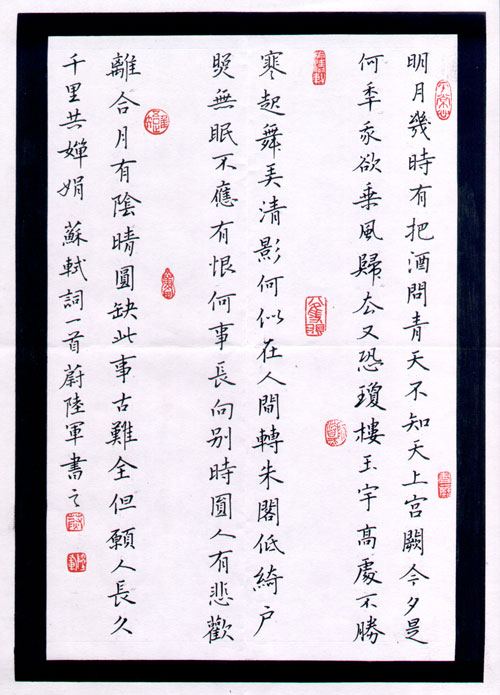 明月幾時有把酒問青天不知天上宮闕今夕是
何秊我欲乘風歸去又恐瓊樓玉宇高處不勝
寒起舞弄清影何似在人間轉朱閣低綺户
照無眠不應有恨何事長向别時圓人有悲歡
離合月有陰晴圓缺此事古難全但願人長久
千里共嬋娟 蘇軾詞一首蔚陸軍書之